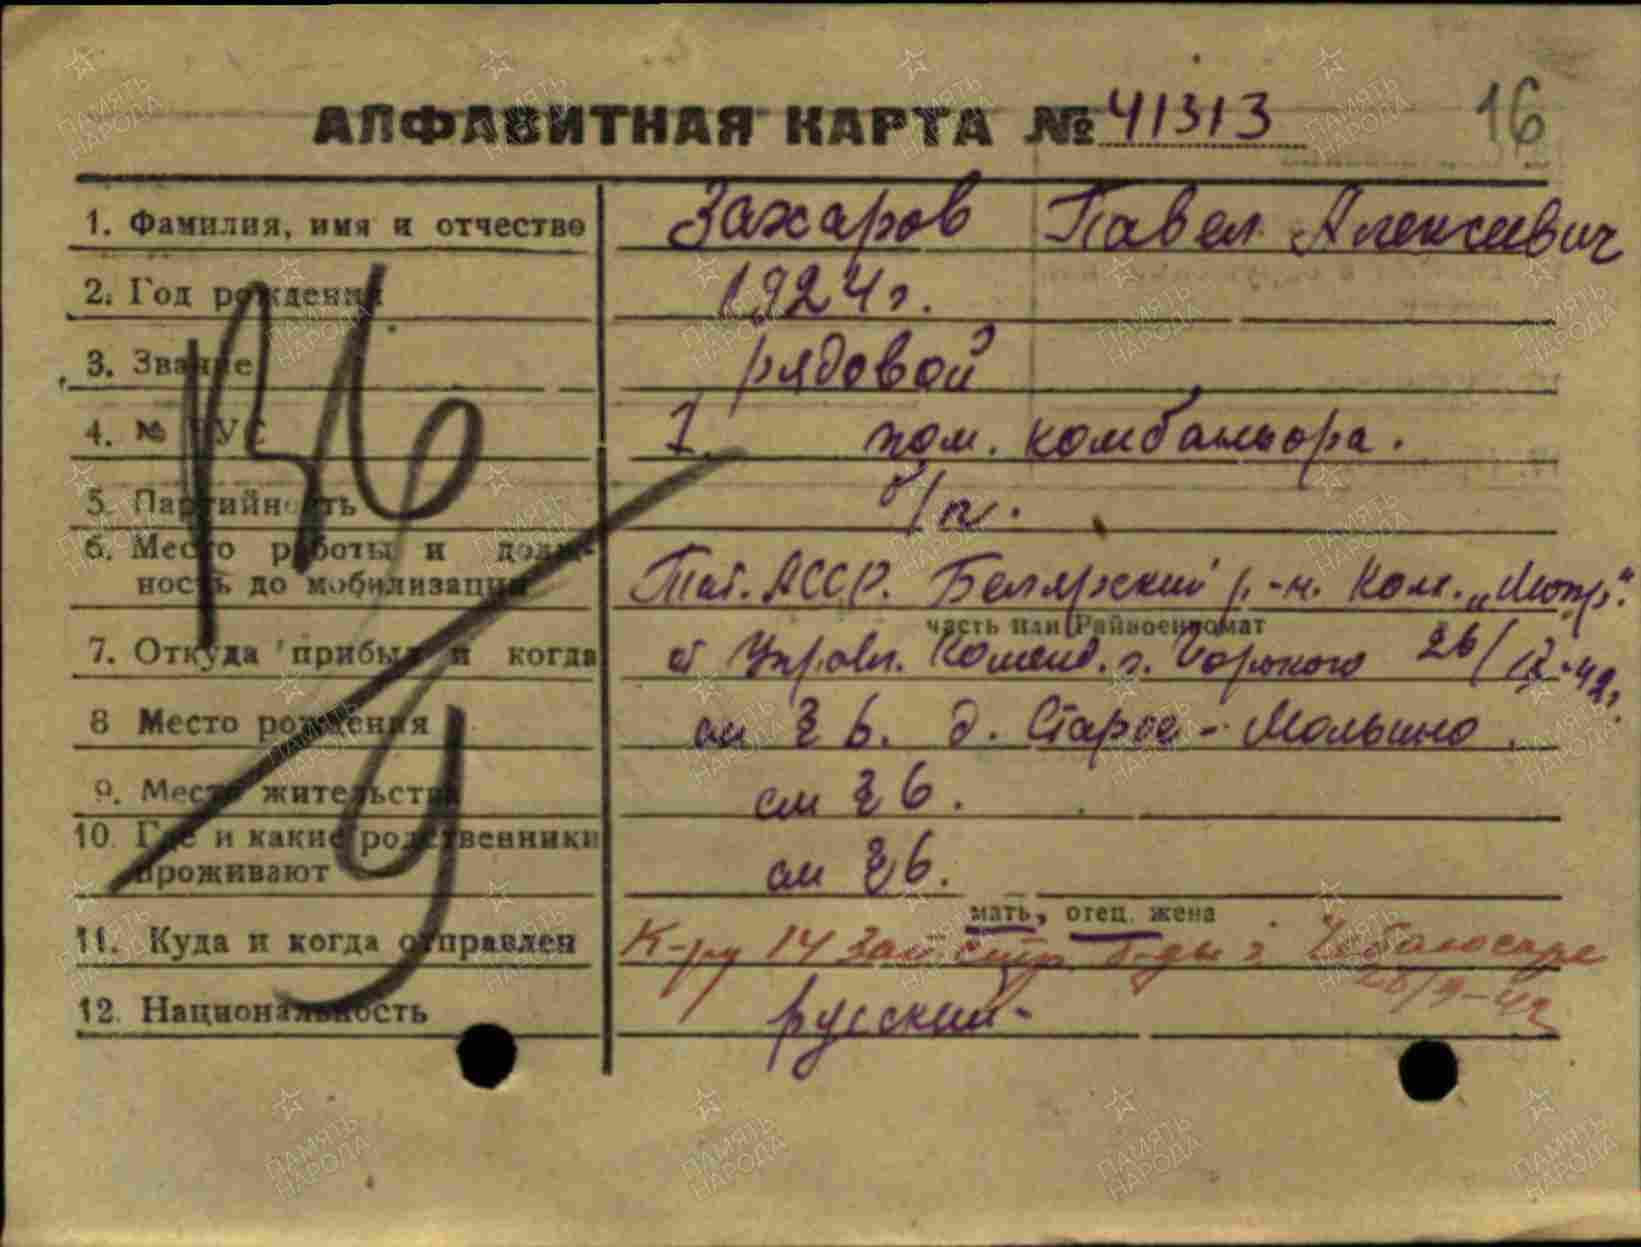 АЛФАВИТНАЯ КАРТА № 41313 16
1. Фамилия, имя и отчество Захаров Павел Алексеевич
2. Год рождения 1924 г.
3. Звание рядовой
4. № ВУС 1 пом. комбайнера.
5. Партийность б/п.
6. Место работы и долж-
ность до мобилизации Тат. АССР. Белярский р-н. Колх. „Мопр“
часть или Райвоенкомат
7. Откуда прибыл и когда от Управл. Коменд. г. Горького 26/12-42г.
8 Место рождения см § 6. д. Старое-Мольшино.
9. Место жительства см § 6.
10. Где и какие родственники
проживают см § 6.
мать, отец, жена
11. Куда и когда отправлен К-ру 14 Зап стр б-ды г. Чебоксары
12. Национальность русский-
ПАМЯТЬ
НАРОДА